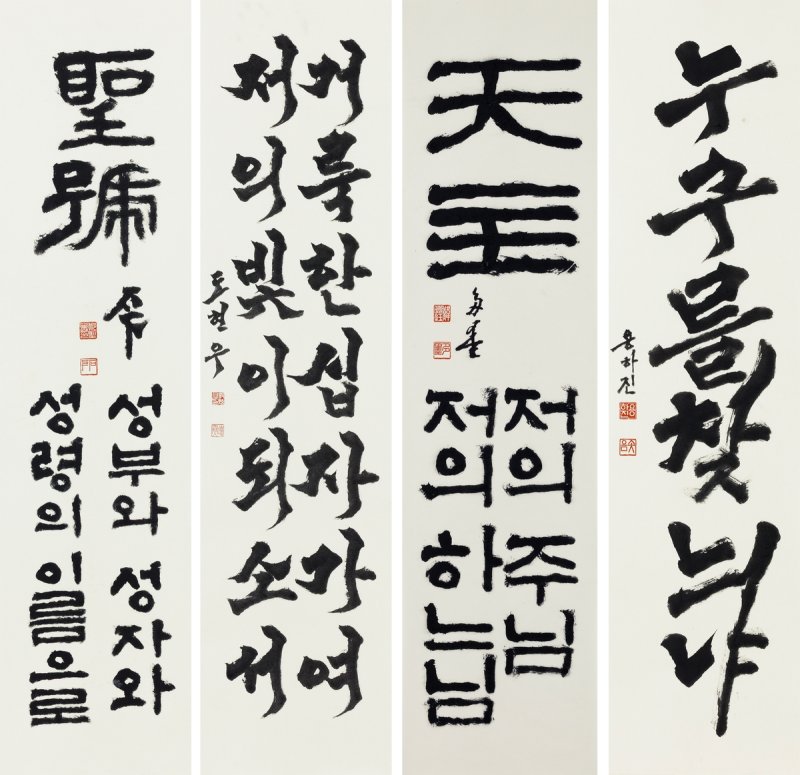 聖號
성부와 성자와
성령의 이름으로
거룩한 십자가여
저의 빛이 되소서
도현우
天主
저의 주님
저의 하느님
누구를 찾느냐
용하진